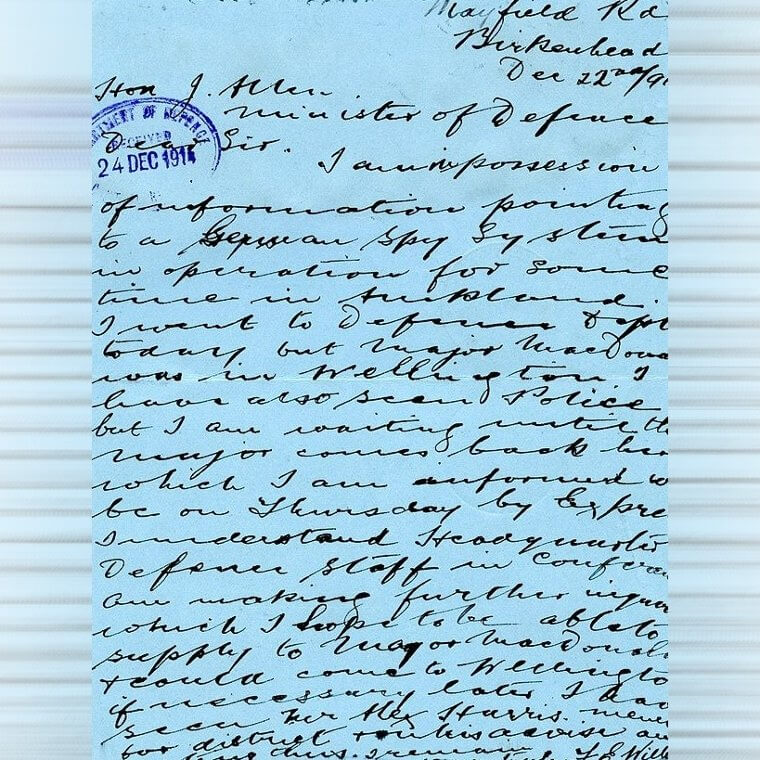 Mayfield Rd
Birkenhead
Dec 22nd/91
Hon J. Allen
Minister of Defence
DEPARTMENT OF DEFENCE
RECEIVED
24 DEC 1914
Dear Sir.
I am in possession
of information pointing
to a German spy System
in operation for some
time in Aukland.
I went to Defence Dept
today but Major MacDona
was in Wellington I
have also seen Police
but I am waiting until th
major comes back here
which I am informed w
be on Thursday by Expre
I understand Headquarter
Defence Staff in Conferen
am making further inquir
which I hope to be able to
supply to Major MacDonal
& could come to Wellington
if necessary later I hav
seen Mr Alex Harris. mem
for district & on his advise am
I remain